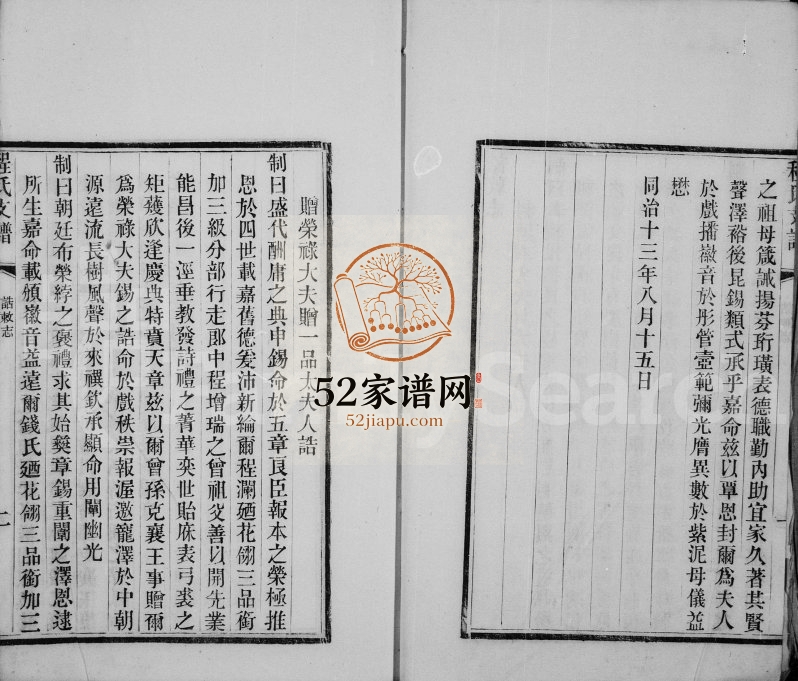 程氏支譜
之祖母箴誡揚芬珩璜表德職勤內助宜家久著其賢
聲澤裕後昆錫類式承乎嘉命茲以覃恩封爾為夫人
於戲播徽音於彤管壼範彌光膺異數於紫泥母儀益
懋
同治十三年八月十五日
贈榮祿大夫贈一品太夫人誥
制曰盛代酬庸之典申錫命於五章良臣報本之榮極推
恩於四世載嘉舊德爰沛新綸爾程瀾廼花翎三品銜
加三級分部行走郎中程增瑞之曾祖父善以開先業
能昌後一涇垂教發詩禮之菁華奕世貽庥表弓裘之
矩彠欣逢慶典特賁天章茲以爾曾孫克襄王事贈爾
為榮祿大夫錫之誥命於戲秩崇報渥邀寵澤於中朝
源遠流長樹風聲於來禩欽承顯命用闡幽光
制曰朝廷布榮綍之褒禮求其始奬章錫重闈之澤恩逮
所生嘉命載頒徽音益遠爾錢氏廼花翎三品銜加三
程氏支譜
誥敕志
二
52家谱网
52jiapu.com